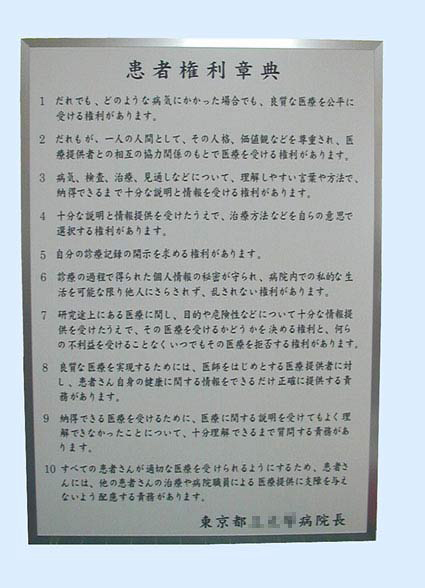 患者権利章典
1 だれでも、どのような病気にかかった場合でも、良質な医療を公平に
受ける権利があります。
2 だれもが、一人の人間として、その人格、価値観などを尊重され、医
療提供者との相互の協力関係のもとで医療を受ける権利があります。
3 病気、検査、治療、見通しなどについて、理解しやすい言葉や方法で、
納得できるまで十分な説明と情報を受ける権利があります。
4 十分な説明と情報提供を受けたうえで、治療方法などを自らの意思で
選択する権利があります。
5 自分の診療記録の開示を求める権利があります。
6 診療の過程で得られた個人情報の秘密が守られ、病院内での私的な生
活を可能な限り他人にさらされず、乱されない権利があります。
7 研究途上にある医療に関し、目的や危険性などについて十分な情報提
供を受けたうえで、その医療を受けるかどうかを決める権利と、何ら
の不利益を受けることなくいつでもその医療を拒否する権利があります。
8 良質な医療を実現するためには、医師をはじめとする医療提供者に対
し、患者さん自身の健康に関する情報をできるだけ正確に提供する責
務があります。
9 納得できる医療を受けるために、医療に関する説明を受けてもよく理
解できなかったことについて、十分理解できるまで質問する責務があ
ります。
10 すべての患者さんが適切な医療を受けられるようにするため、患者さ
んには、他の患者さんの治療や病院職員による医療提供に支障を与え
ないよう配慮する責務があります。
東京都 病院長